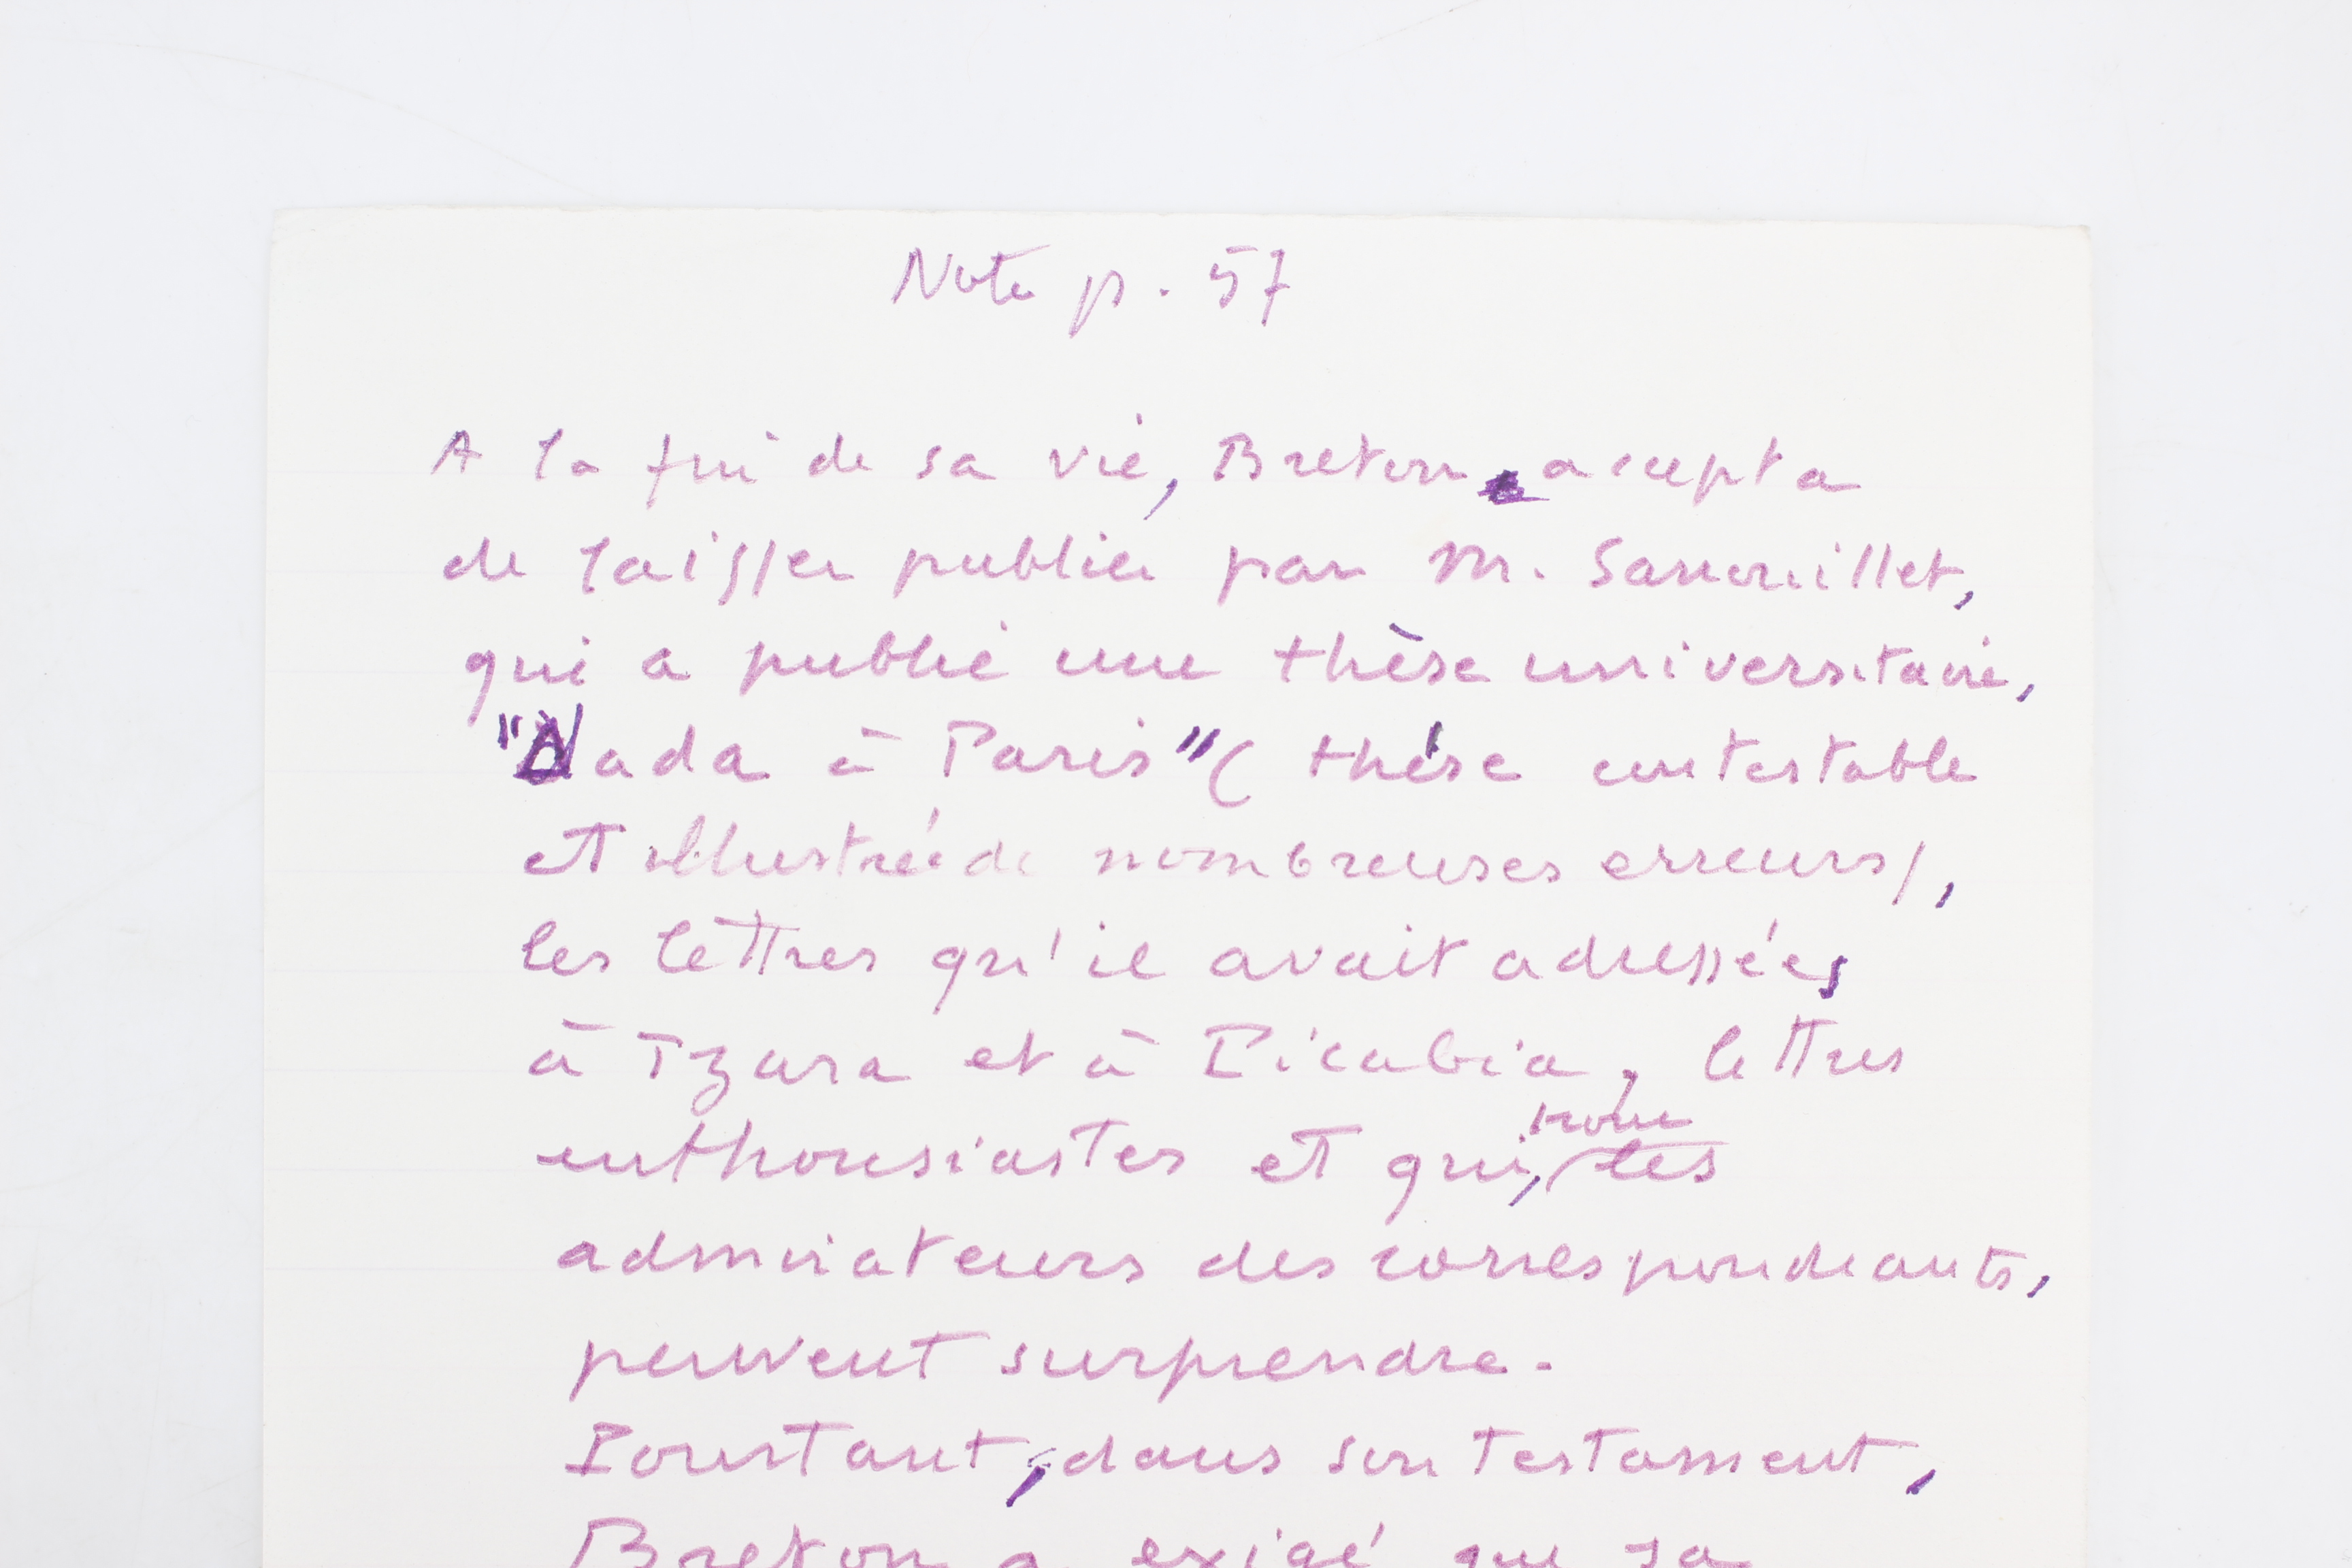 Note p. 57
A la fin de sa vie, Breton accepta
de laisser publier par M. Sanouillet,
qui a publié une thèse universitaire,
"Dada à Paris" (thèse contestable
et illustrée de nombreuses erreurs),
les lettres qu'il avait adressées
à Tzara et à Picabia, lettres
pour
enthousiastes et qui, les
admirateurs des correspondants,
peuvent surprendre.
Pourtant, dans son testament,
Breton a exigé que sa